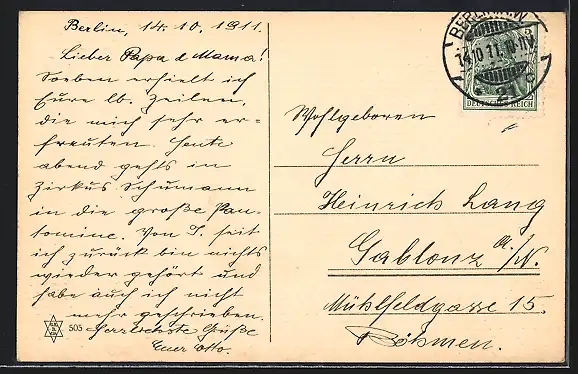 Berlin, 14.10.1911.
Lieber Papa & Mama!
Soeben erhielt ich
Eure lb. Zeilen,
die mich sehr er-
freuten. Heute
abend gehts in
Zirkus Schumann
in die große Pan-
tomime. Von J. seit
ich zurück bin nichts
wieder gehört und
habe auch ich nicht
mehr geschrieben.
Herzlichste Grüße
Euer Otto.
505
BERLIN N.W.
14.10.11. 10-11V
* 21 c
DEUTSCHES REICH
5
Wohlgeboren
Herrn
Heinrich Lang
Gablonz a./N.
Mühlfeldgasse 15.
Böhmen.